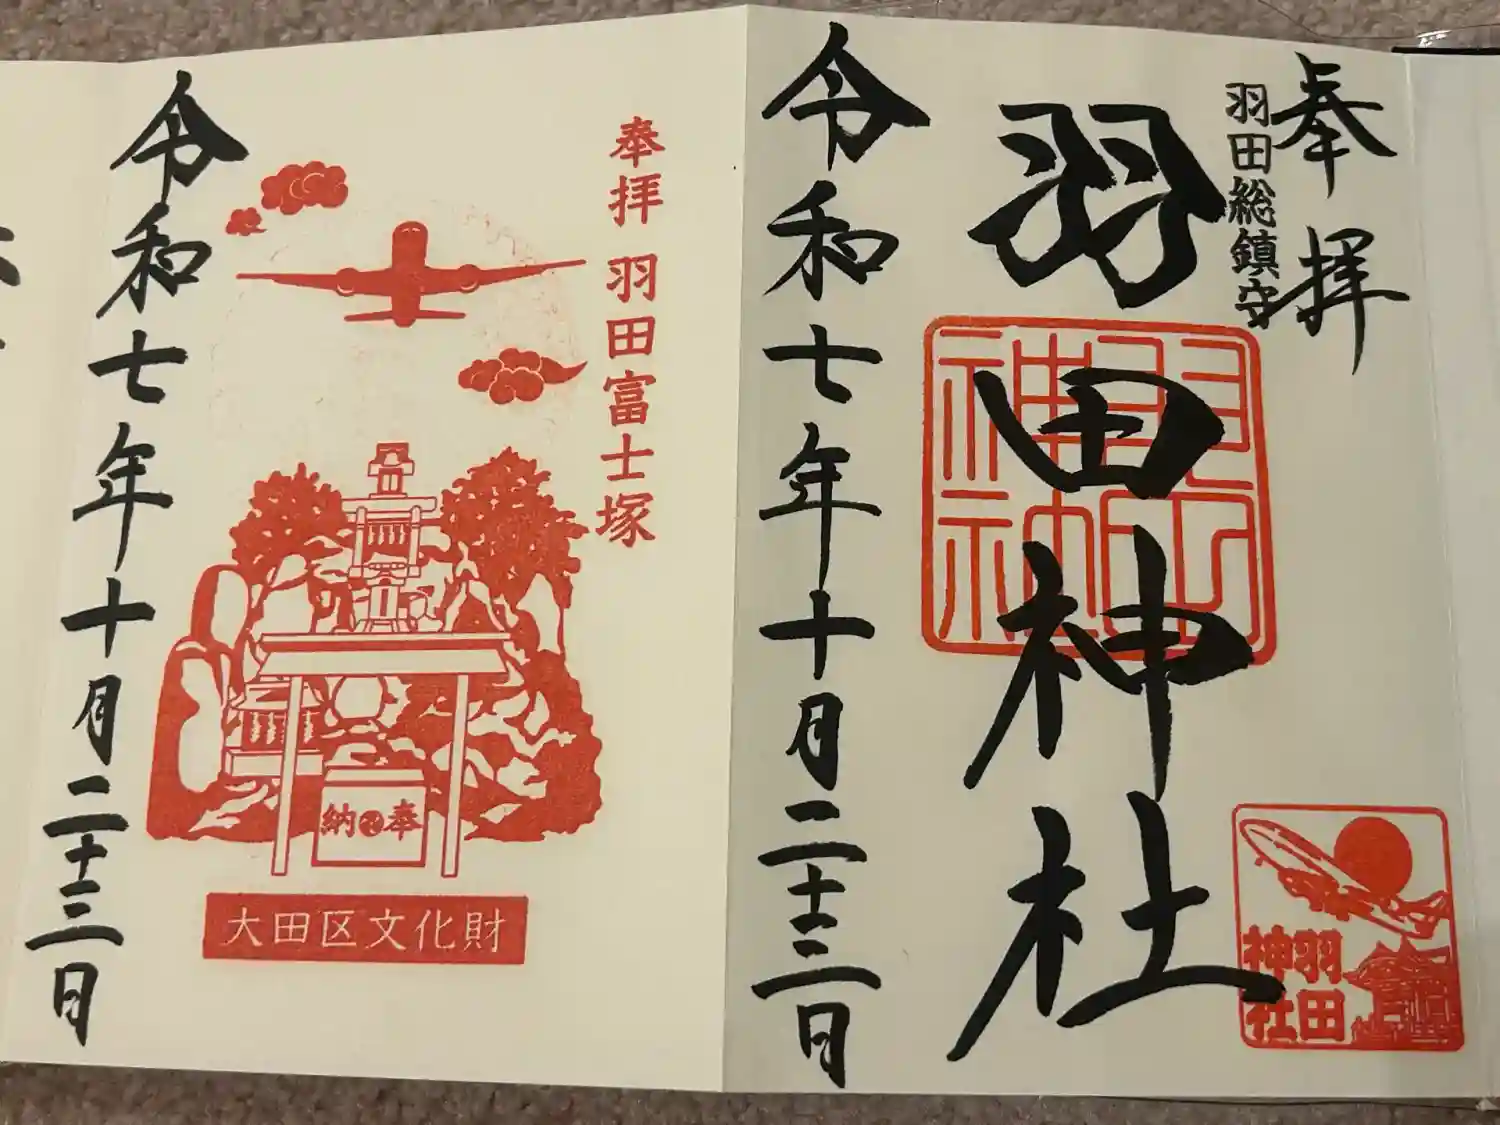 奉拝
羽田総鎮守
羽田神社
羽田
神社
令和七年十月二十三日
奉拝 羽田富士塚
奉納
大田区文化財
令和七年十月二十三日